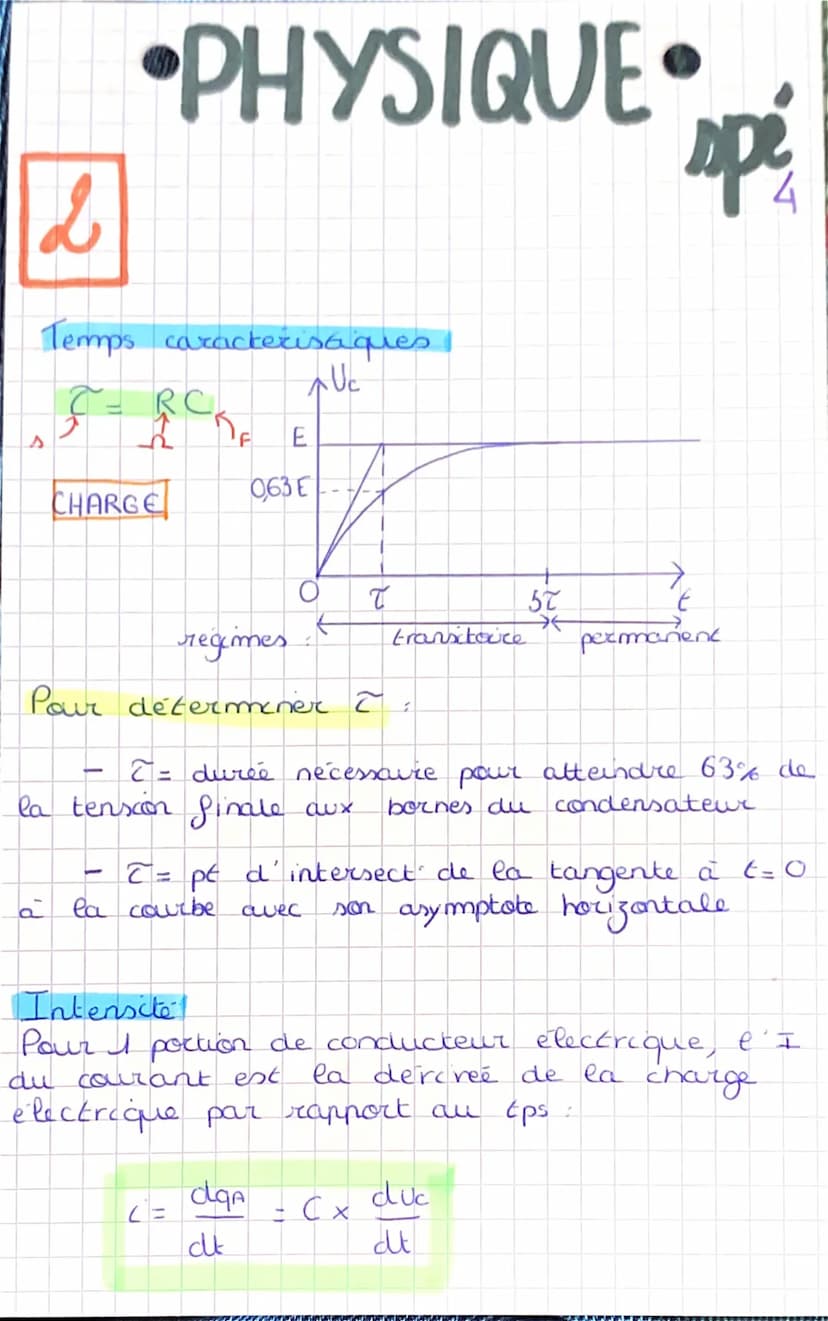 •PHYSIQUE•
spé
4
2
Temps caractéristiques
τ = RC
s Ω F
Uc
E
0,63E
CHARGE
O τ 5τ t
régimes : transitoire permanent
Pour déterminer τ :
- τ = durée nécessaire pour atteindre 63% de
la tension finale aux bornes du condensateur
- τ = pt d'intersect° de la tangente à t=0
à la courbe avec son asymptote horizontale
Intensité
Pour 1 portion de conducteur électrique, l'I
du courant est la dérivée de la charge
électrique par rapport au tps :
i = dqA/dt = C x dUc/dt